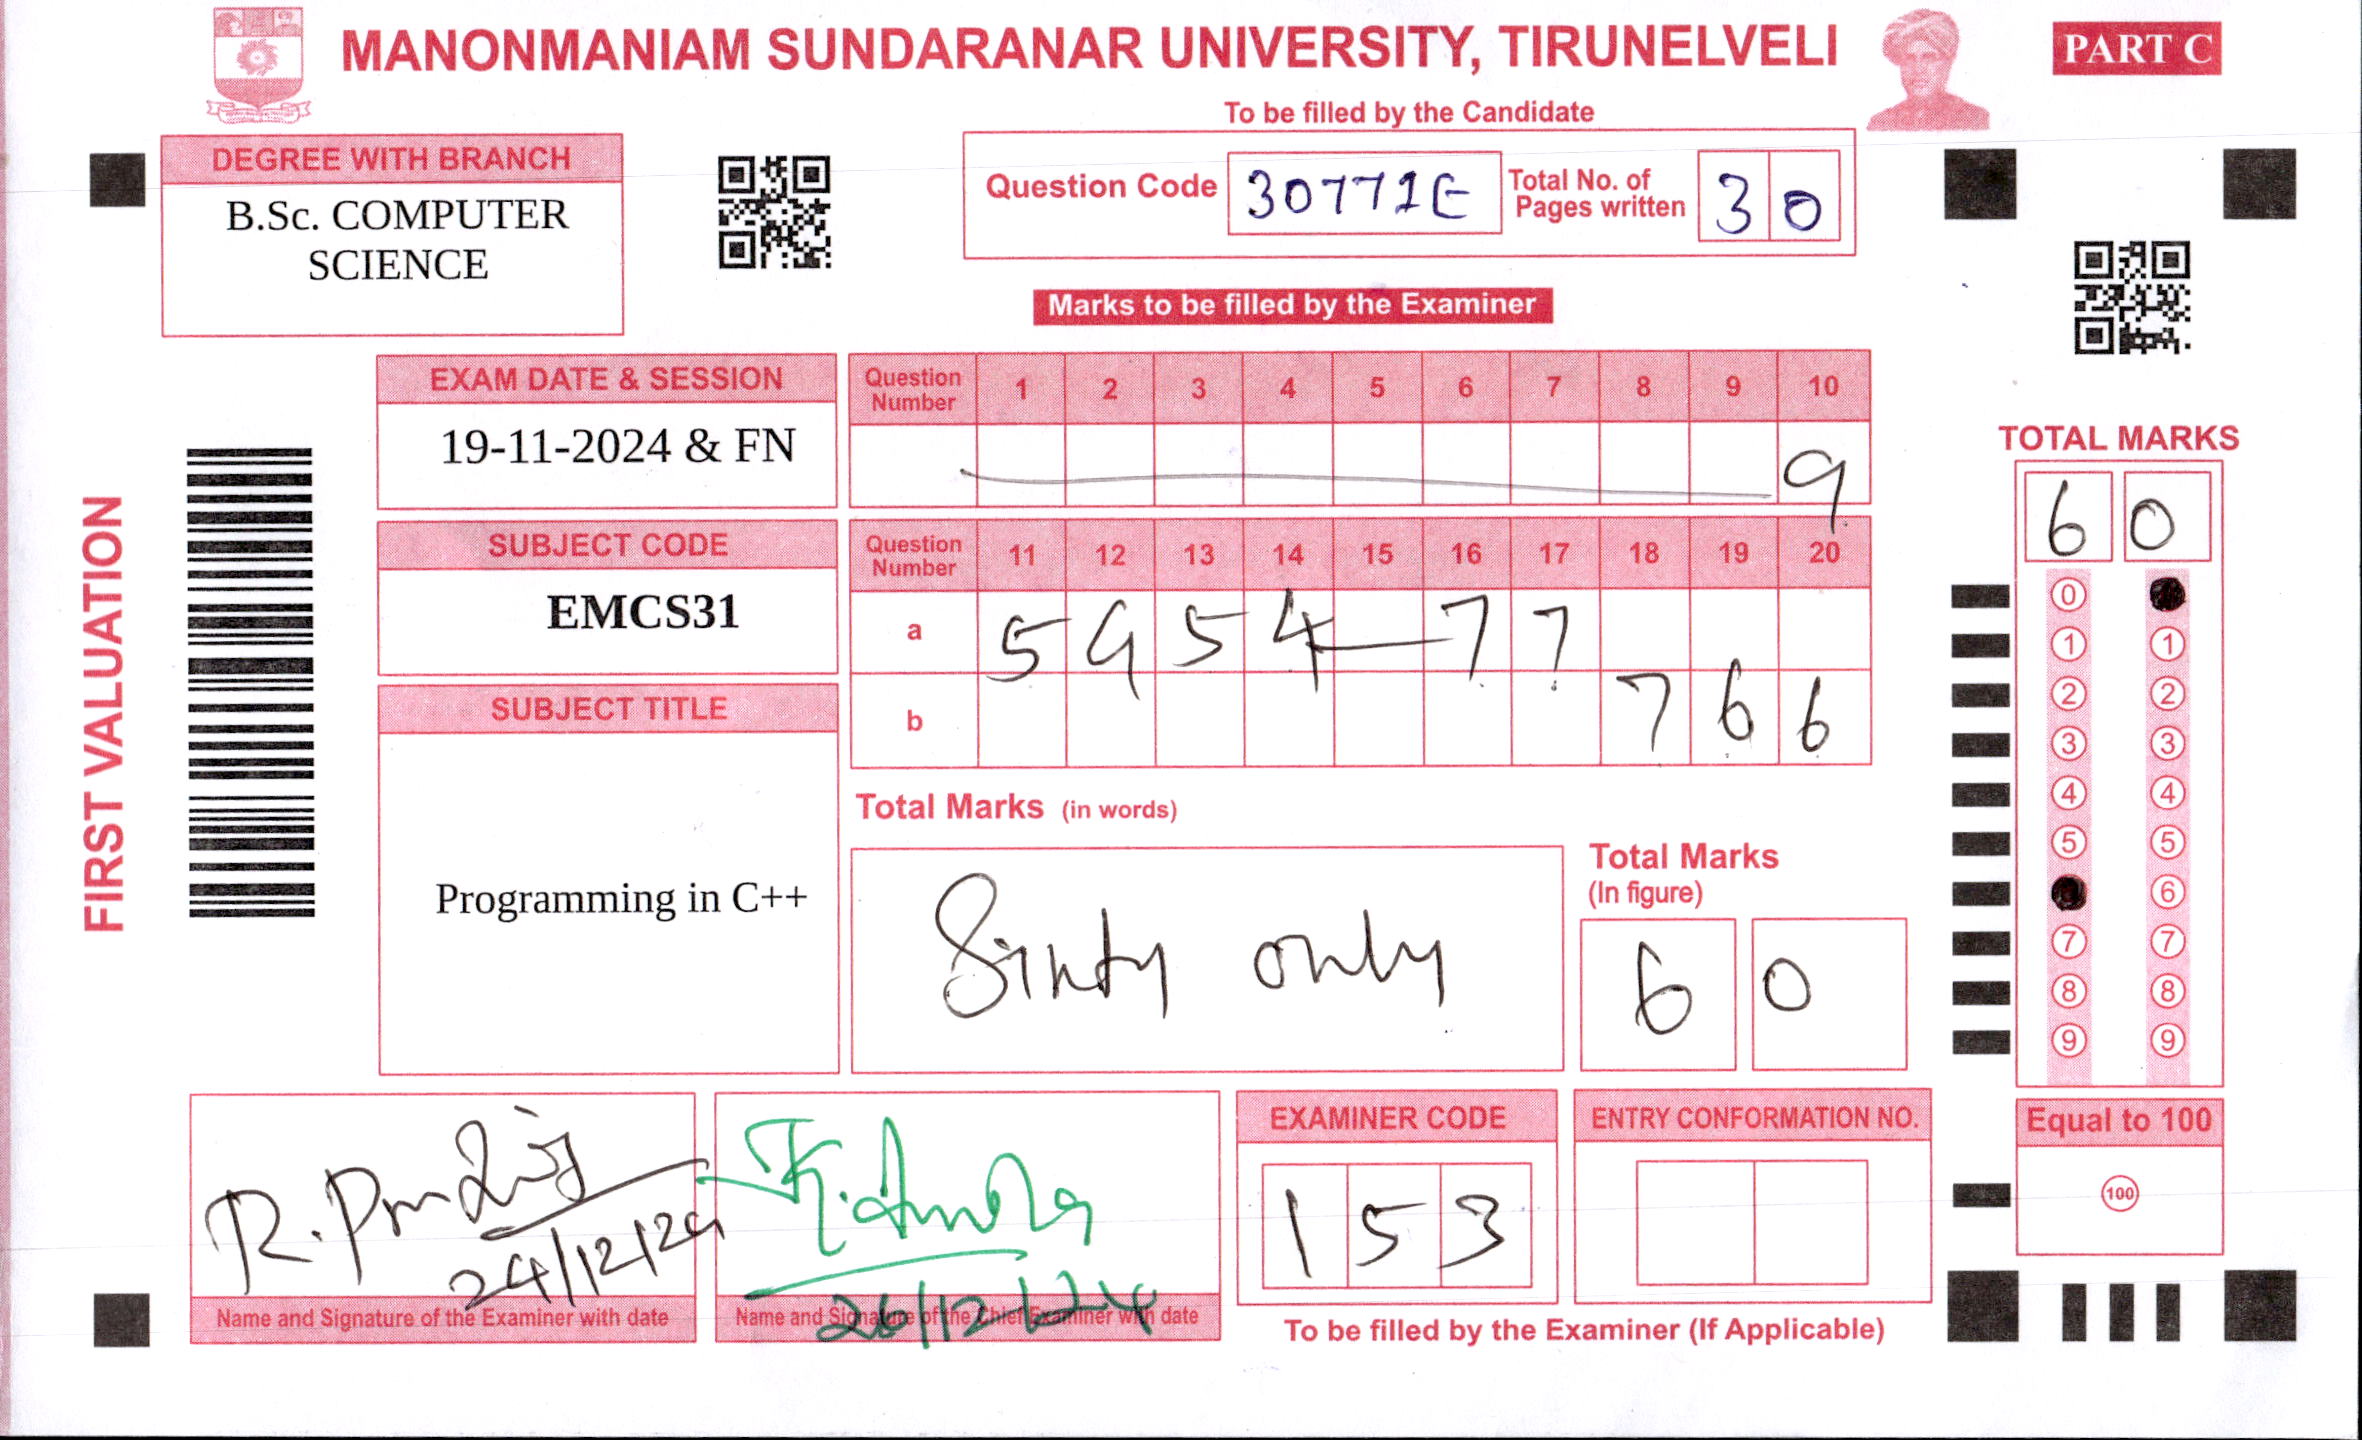 MANONMANIAM SUNDARANAR UNIVERSITY, TIRUNELVELI
PART C
To be filled by the Candidate
DEGREE WITH BRANCH
B.Sc. COMPUTER
SCIENCE
Question Code 30771E Total No. of Pages written 30
Marks to be filled by the Examiner
EXAM DATE & SESSION
19-11-2024 & FN
Question Number 1 2 3 4 5 6 7 8 9 10
9
SUBJECT CODE
EMCS31
Question Number 11 12 13 14 15 16 17 18 19 20
a 5 9 5 4 — 7 7
b 7 6 6
SUBJECT TITLE
Programming in C++
FIRST VALUATION
Total Marks (in words)
Sixty only
Total Marks
(In figure)
6 0
TOTAL MARKS
6 0
0
1 1
2 2
3 3
4 4
5 5
6
7 7
8 8
9 9
Equal to 100
100
24/12/24
Name and Signature of the Examiner with date
26/12/24
Name and Signature of the Chief Examiner with date
EXAMINER CODE
1 5 3
ENTRY CONFORMATION NO.
To be filled by the Examiner (If Applicable)